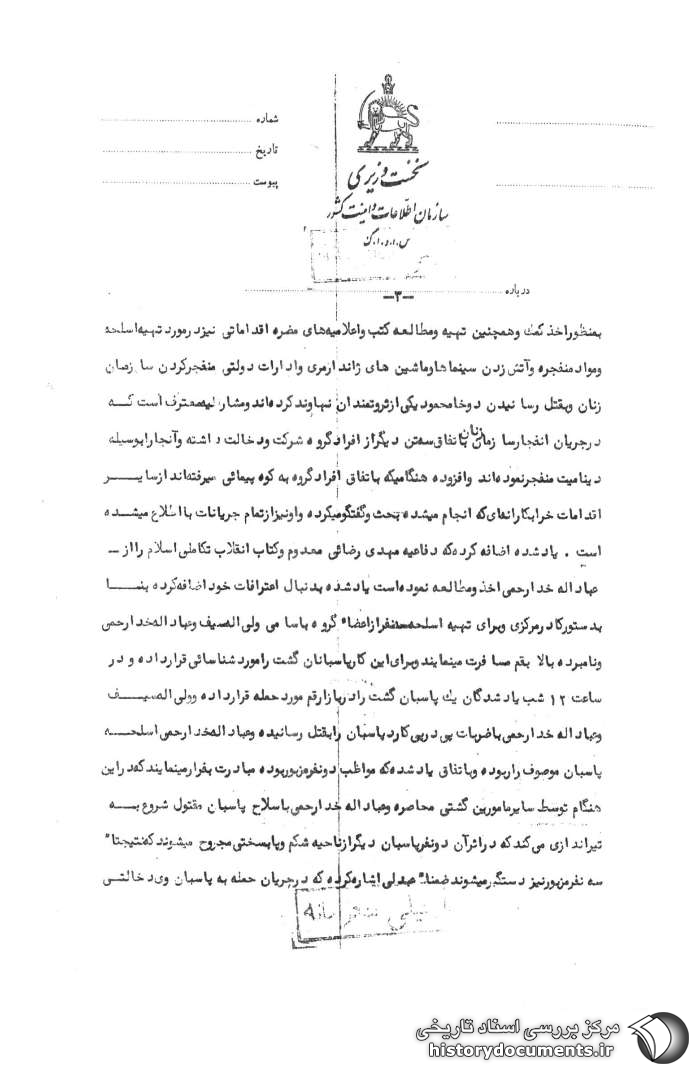 شماره
تاریخ
پیوست
نخست وزیری
سازمان اطلاعات و امنیت کشور
س.ا.و.ا.ک
درباره
-۳-
بمنظور اخذ کمک وهمچنین تهیه ومطالعه کتب واعلامیه‌های مضره اقداماتی نیز در مورد تهیه اسلحه
ومواد منفجره وآتش زدن سینماها وماشین های ژاندارمری وادارات دولتی منفجر کردن سازمان
زنان وبقتل رسانیدن دوخا محمود یکی از ثروتمندان نهاوند کرده‌اند ومشارالیه معترف است که
در جریان انفجار سازمان زنان باتفاق سه تن دیگر از افراد گروه شرکت ودخالت داشته وآنجا را بوسیله
دینامیت منفجر نموده‌اند وافزوده هنگامیکه باتفاق افراد گروه به کوه پیمائی میرفته‌اند از سایر
اقدامات خرابکارانه‌ای که انجام میشده بحث وگفتگو میکرده واو نیز از تمام جریانات با اطلاع میشده
است . یادشده اضافه کرده که دفاعیه مهدی رضائی معدوم وکتاب انقلاب تکاملی اسلام را از -
عباداله خدارحمی اخذ ومطالعه نموده است یادشده بدنبال اعترافات خود اضافه کرده بنا
بدستور کادر مرکزی وبرای تهیه اسلحه سه نفر از اعضاء گروه باسامی ولی اله سیف وعباداله خدارحمی
ونامبرده بالا بقم مسافرت مینمایند وبرای این کار پاسبانان گشت را مورد شناسائی قرار داده و در
ساعت ۱۲ شب یادشدگان یک پاسبان گشت را در بازار قم مورد حمله قرار داده وولی اله سیف
وعباداله خدارحمی باضربات پی در پی کارد پاسبان را بقتل رسانیده وعباداله خدارحمی اسلحه
پاسبان موصوف را ربوده وباتفاق یادشده که مواظب دونفر مزبور بوده مبادرت بفرار مینمایند که در این
هنگام توسط سایر مامورین گشتی محاصره وعباداله خدارحمی باسلاح پاسبان مقتول شروع به
تیراندازی می کند که در اثر آن دونفر پاسبان دیگر از ناحیه شکم وپا بسختی مجروح میشوند که نتیجتا"
سه نفر مزبور نیز دستگیر میشوند ضمنا" عبدلی اشاره کرده که در جریان حمله به پاسبان وی دخالتی
مرکز بررسی اسناد تاریخی
historydocuments.ir